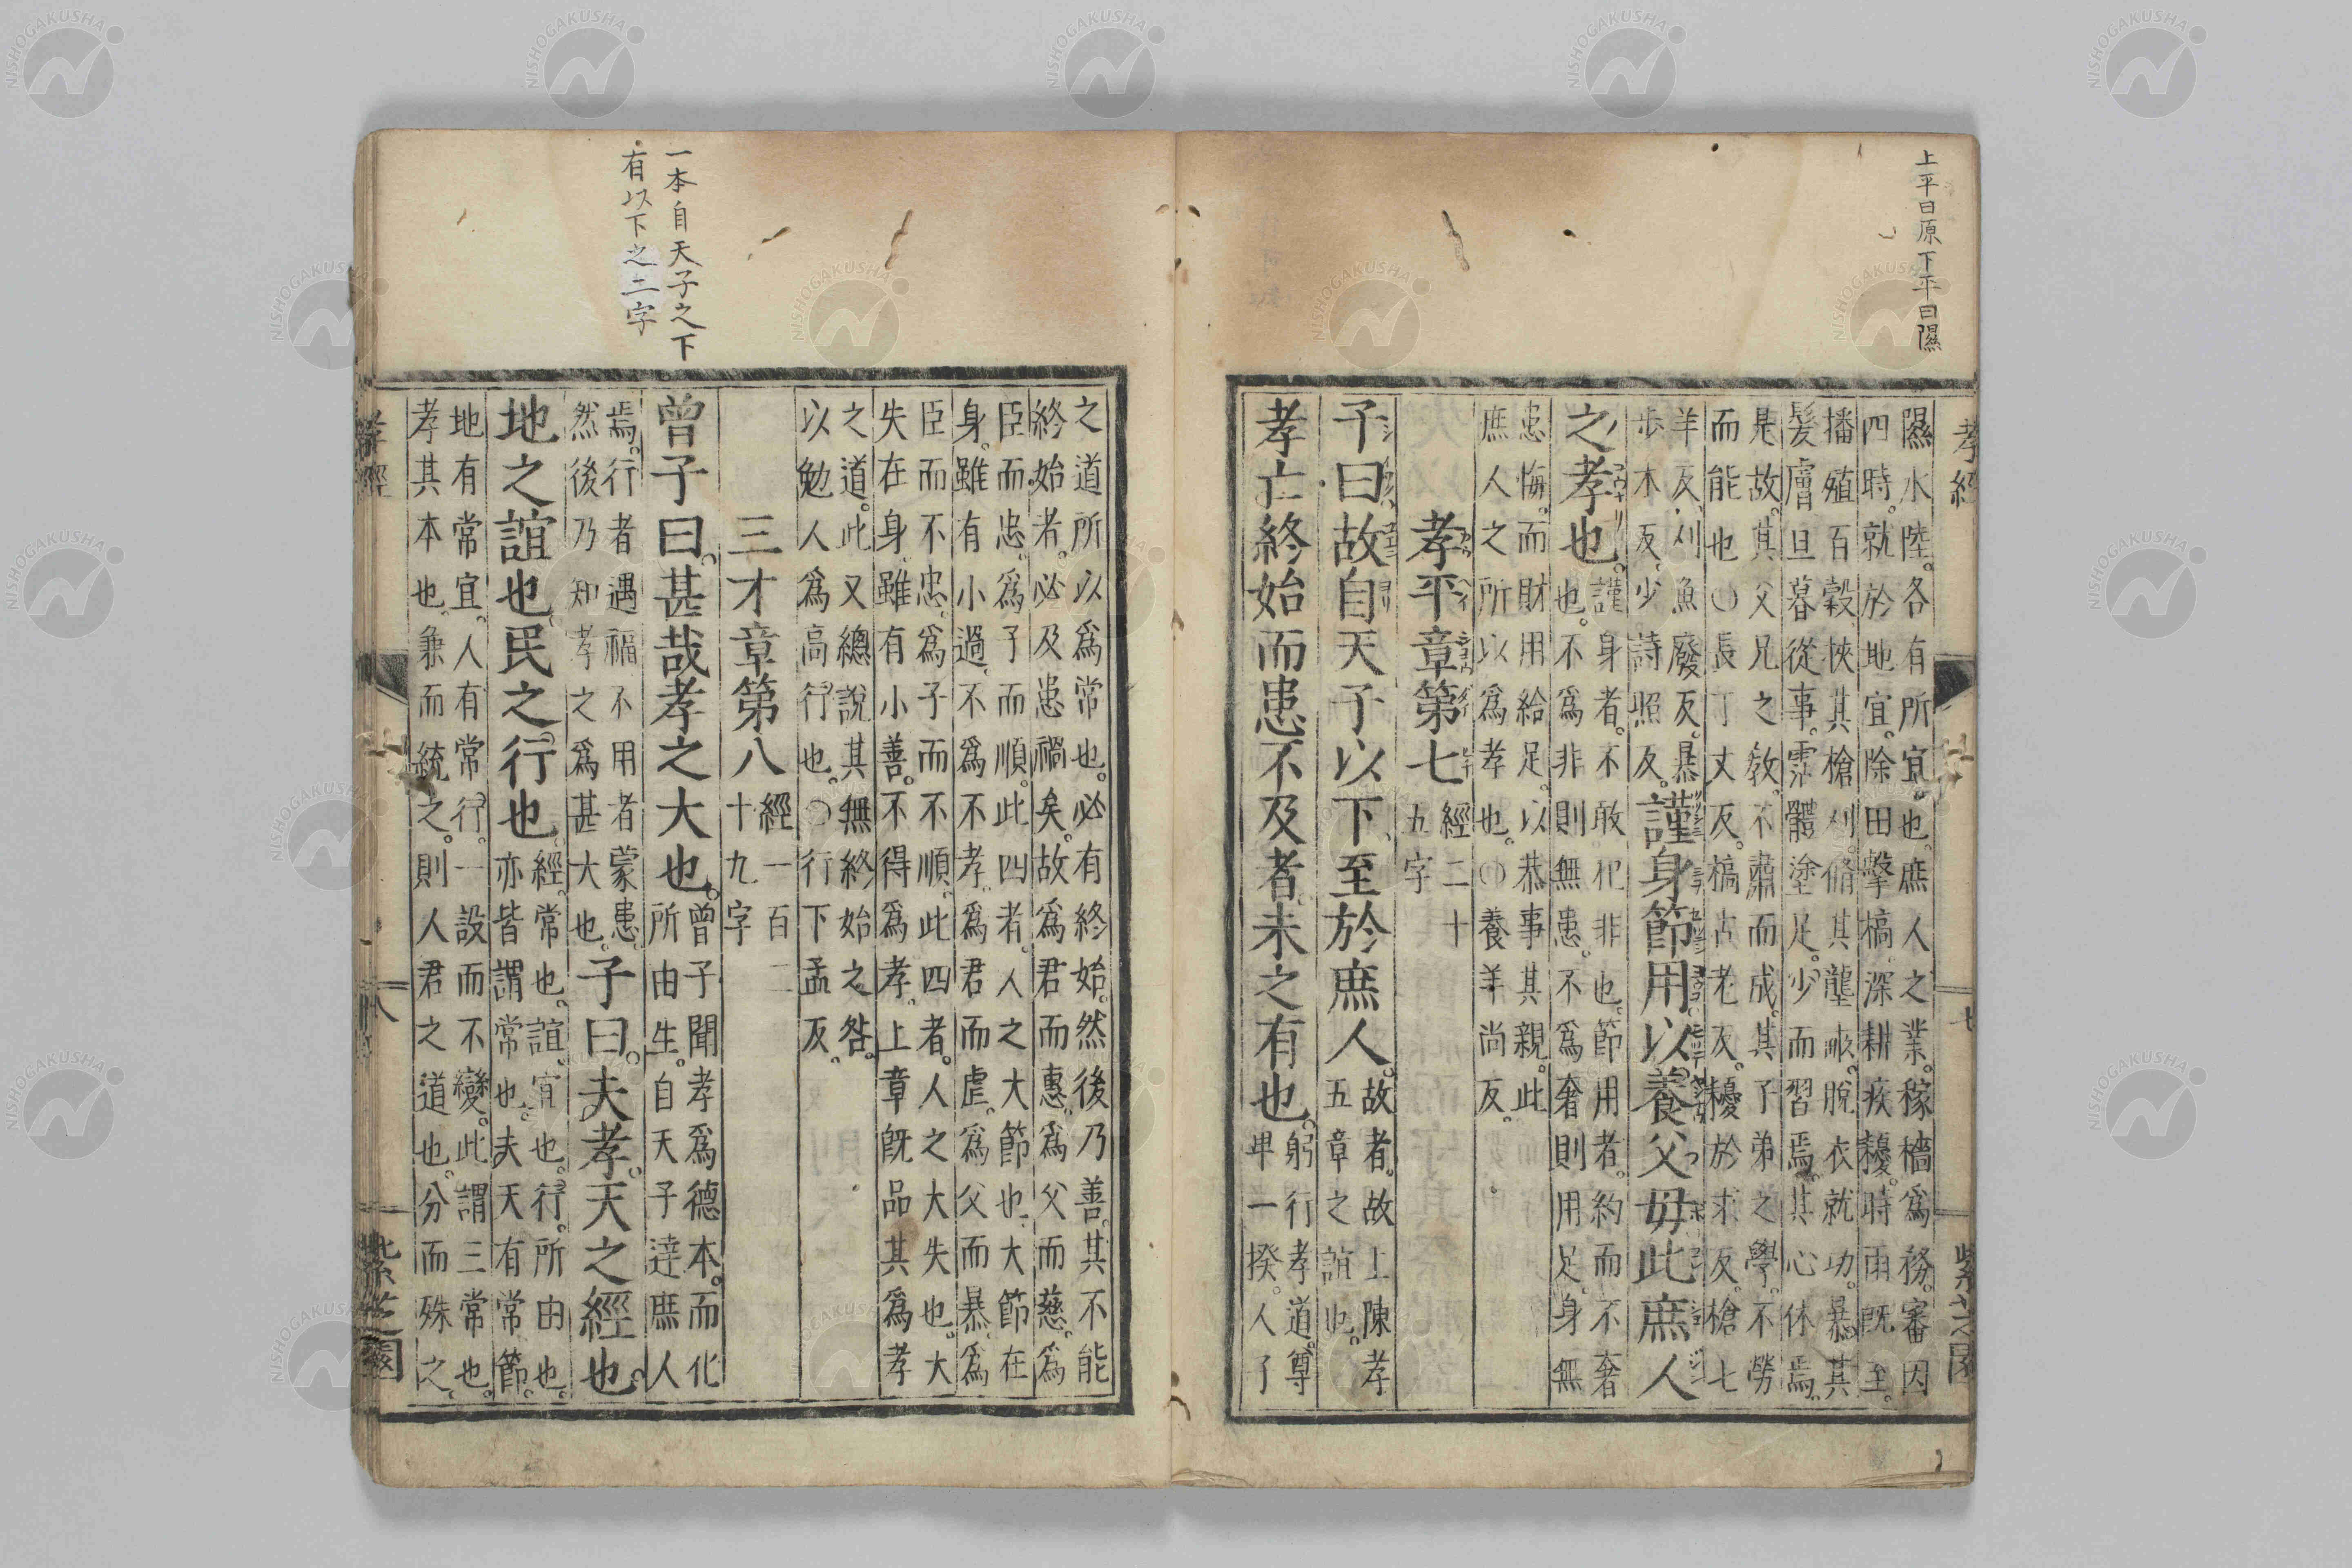 上平曰原下平曰隰
孝經
七
隰水陸。各有所宜也。庶人之業。稼穡爲務。審因
四時。就於地宜。除田擊槁。深耕疾耰。時雨既至。
播殖百穀。挾其槍刈。脩其壟畝。脫衣就功。暴其
髮膚。旦暮從事。霑體塗足。少而習焉。其心休焉。
是故。其父兄之敎。不肅而成。其子弟之學。不勞
而能也〇長丁丈反。槁古老反。耰於求反。槍七
羊反。刈魚廢反。暴
步木反。少詩照反。
謹身節用以養父母此庶人
之孝也。
謹身者。不敢犯非也。節用者。約而不奢
也。不爲非則無患。不爲奢則用足。身無
患悔。而財用給足。以恭事其親。此
庶人之所以爲孝也。〇養羊尚反。
孝平章第七
經二十
五字
子曰故自天子以下至於庶人。
故者。故上陳孝
五章之誼也。
孝亡終始而患不及者未之有也。
躬行孝道。尊
卑一揆。人子
一本自天子之下
有以下之二字
之道所以爲常也。必有終始。然後乃善。其不能
終始者。必及患禍矣。故爲君而惠。爲父而慈。爲
臣而忠。爲子而順。此四者。人之大節也。大節在
身。雖有小過。不爲不孝。爲君而虐。爲父而暴。爲
臣而不忠。爲子而不順。此四者。人之大失也。大
失在身。雖有小善。不得爲孝。上章既品其爲孝
之道。此又總說其無終始之咎。
以勉人爲高行也。〇行下孟反。
三才章第八
經一百二
十九字
曾子曰。甚哉孝之大也。
曾子聞孝爲德本。而化
所由生。自天子達庶人
焉。行者遇福。不用者蒙患。
然後乃知孝之爲甚大也。
子曰。夫孝。天之經也。
地之誼也。民之行也。
經。常也。誼。宜也。行。所由也。
亦皆謂常也。夫天有常節。
地有常宜。人有常行。一設而不變。此謂三常也。
孝其本也。兼而統之。則人君之道也。分而殊之。
孝經
八
紫芝園